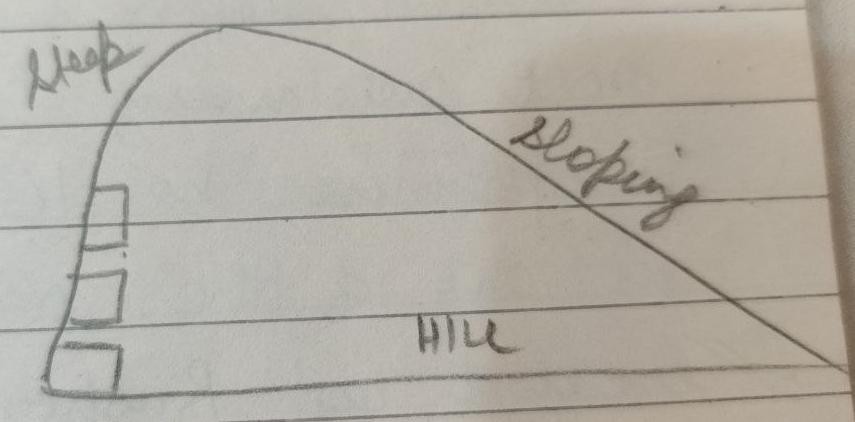 Steep
Sloping
Hill